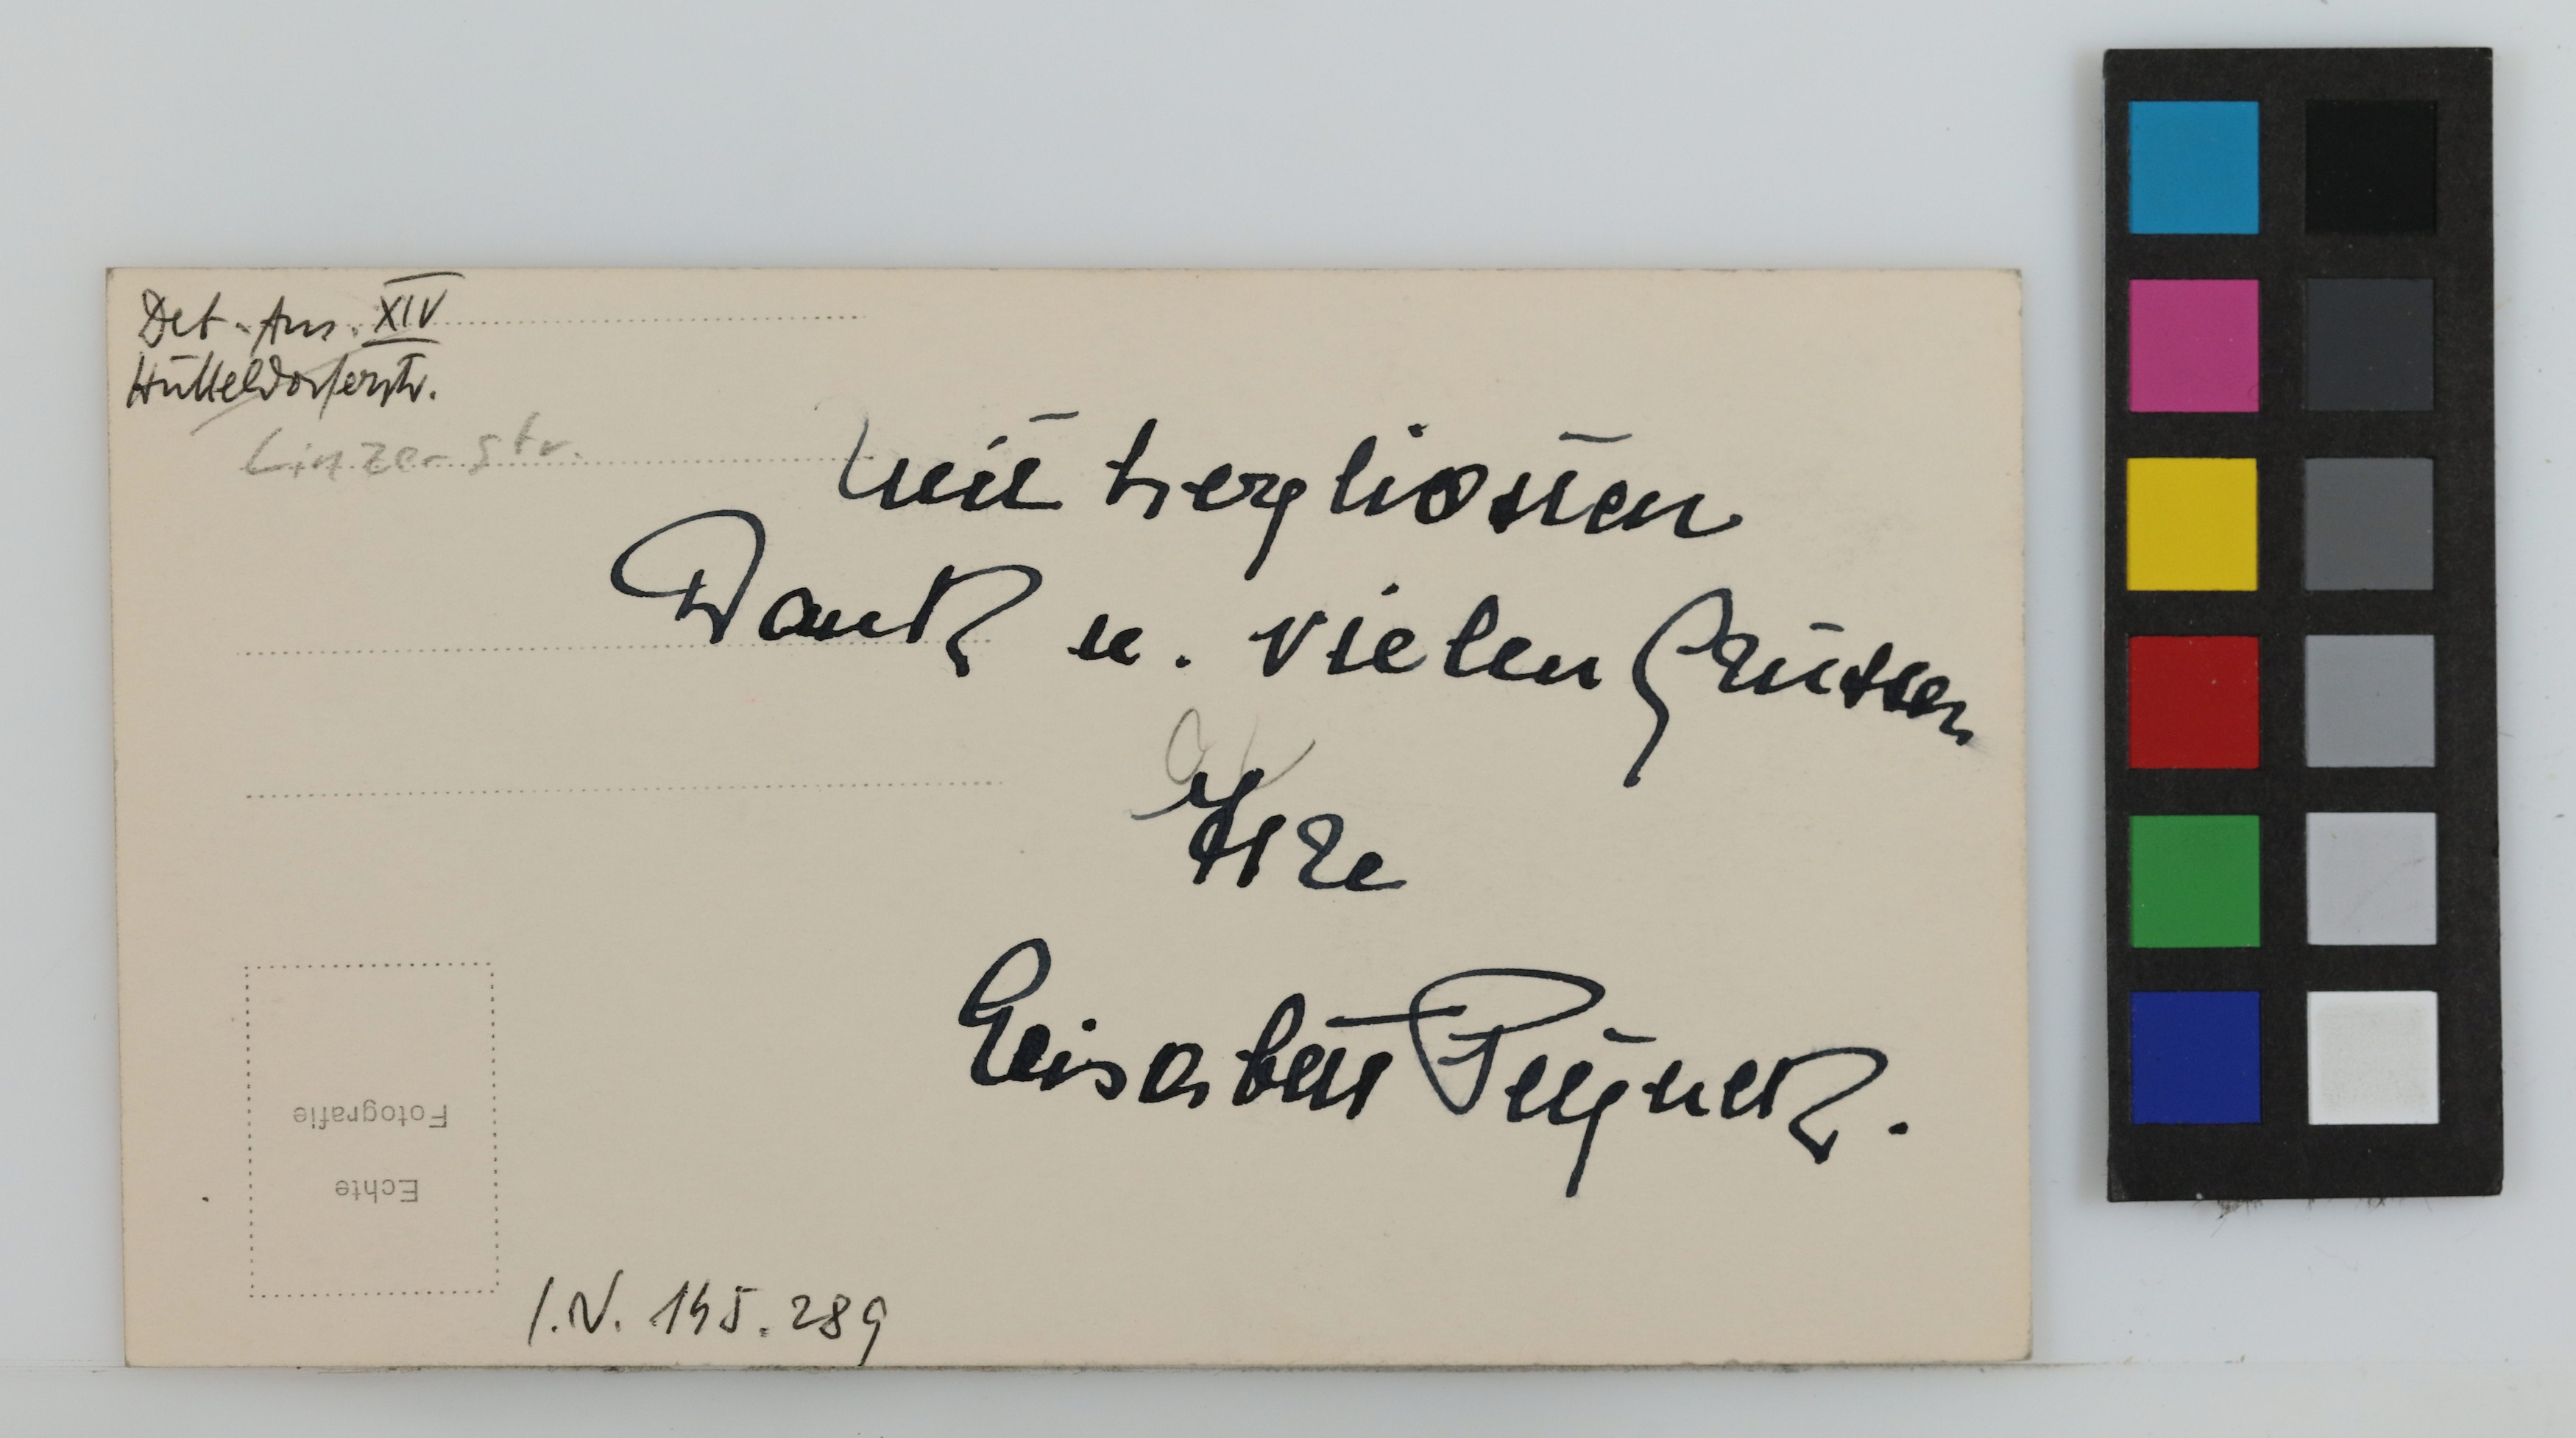 Det. Ans. XIV
Hütteldorferstr.
Linzerstr.
Mit herzlichsten
Dank u. vielen Grüssen
Ihre
Elisabeth
Echte
Fotografie
I.N. 145.289